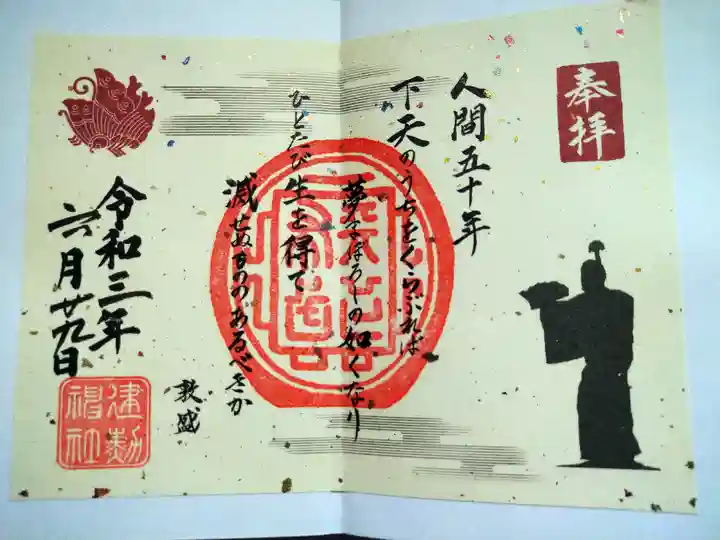 奉拝
人間五十年
下天のうちをくらぶれば
夢まぼろしの如くなり
ひとたび生を得て
滅せぬもののあるべきか
敦盛
令和三年
六月廿九日
建勲
神社